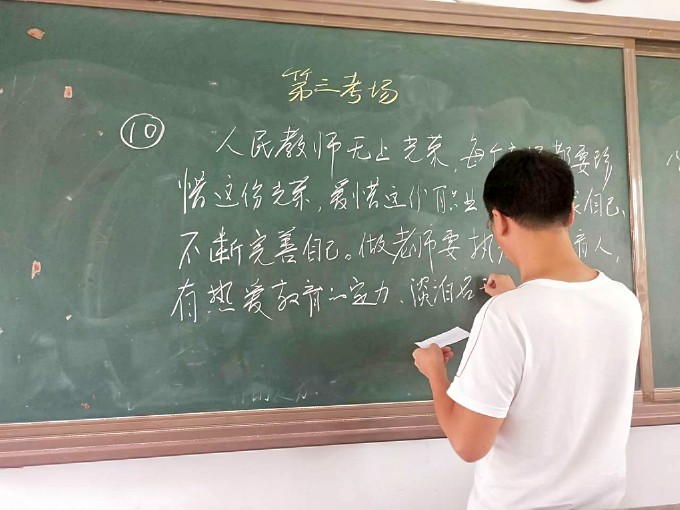 第三考场
⑩ 人民教师无上光荣,每个老师都要珍
惜这份光荣,爱惜这份职业 求自己、
不断完善自己。做老师要执 育人,
有热爱教育的定力、淡泊名